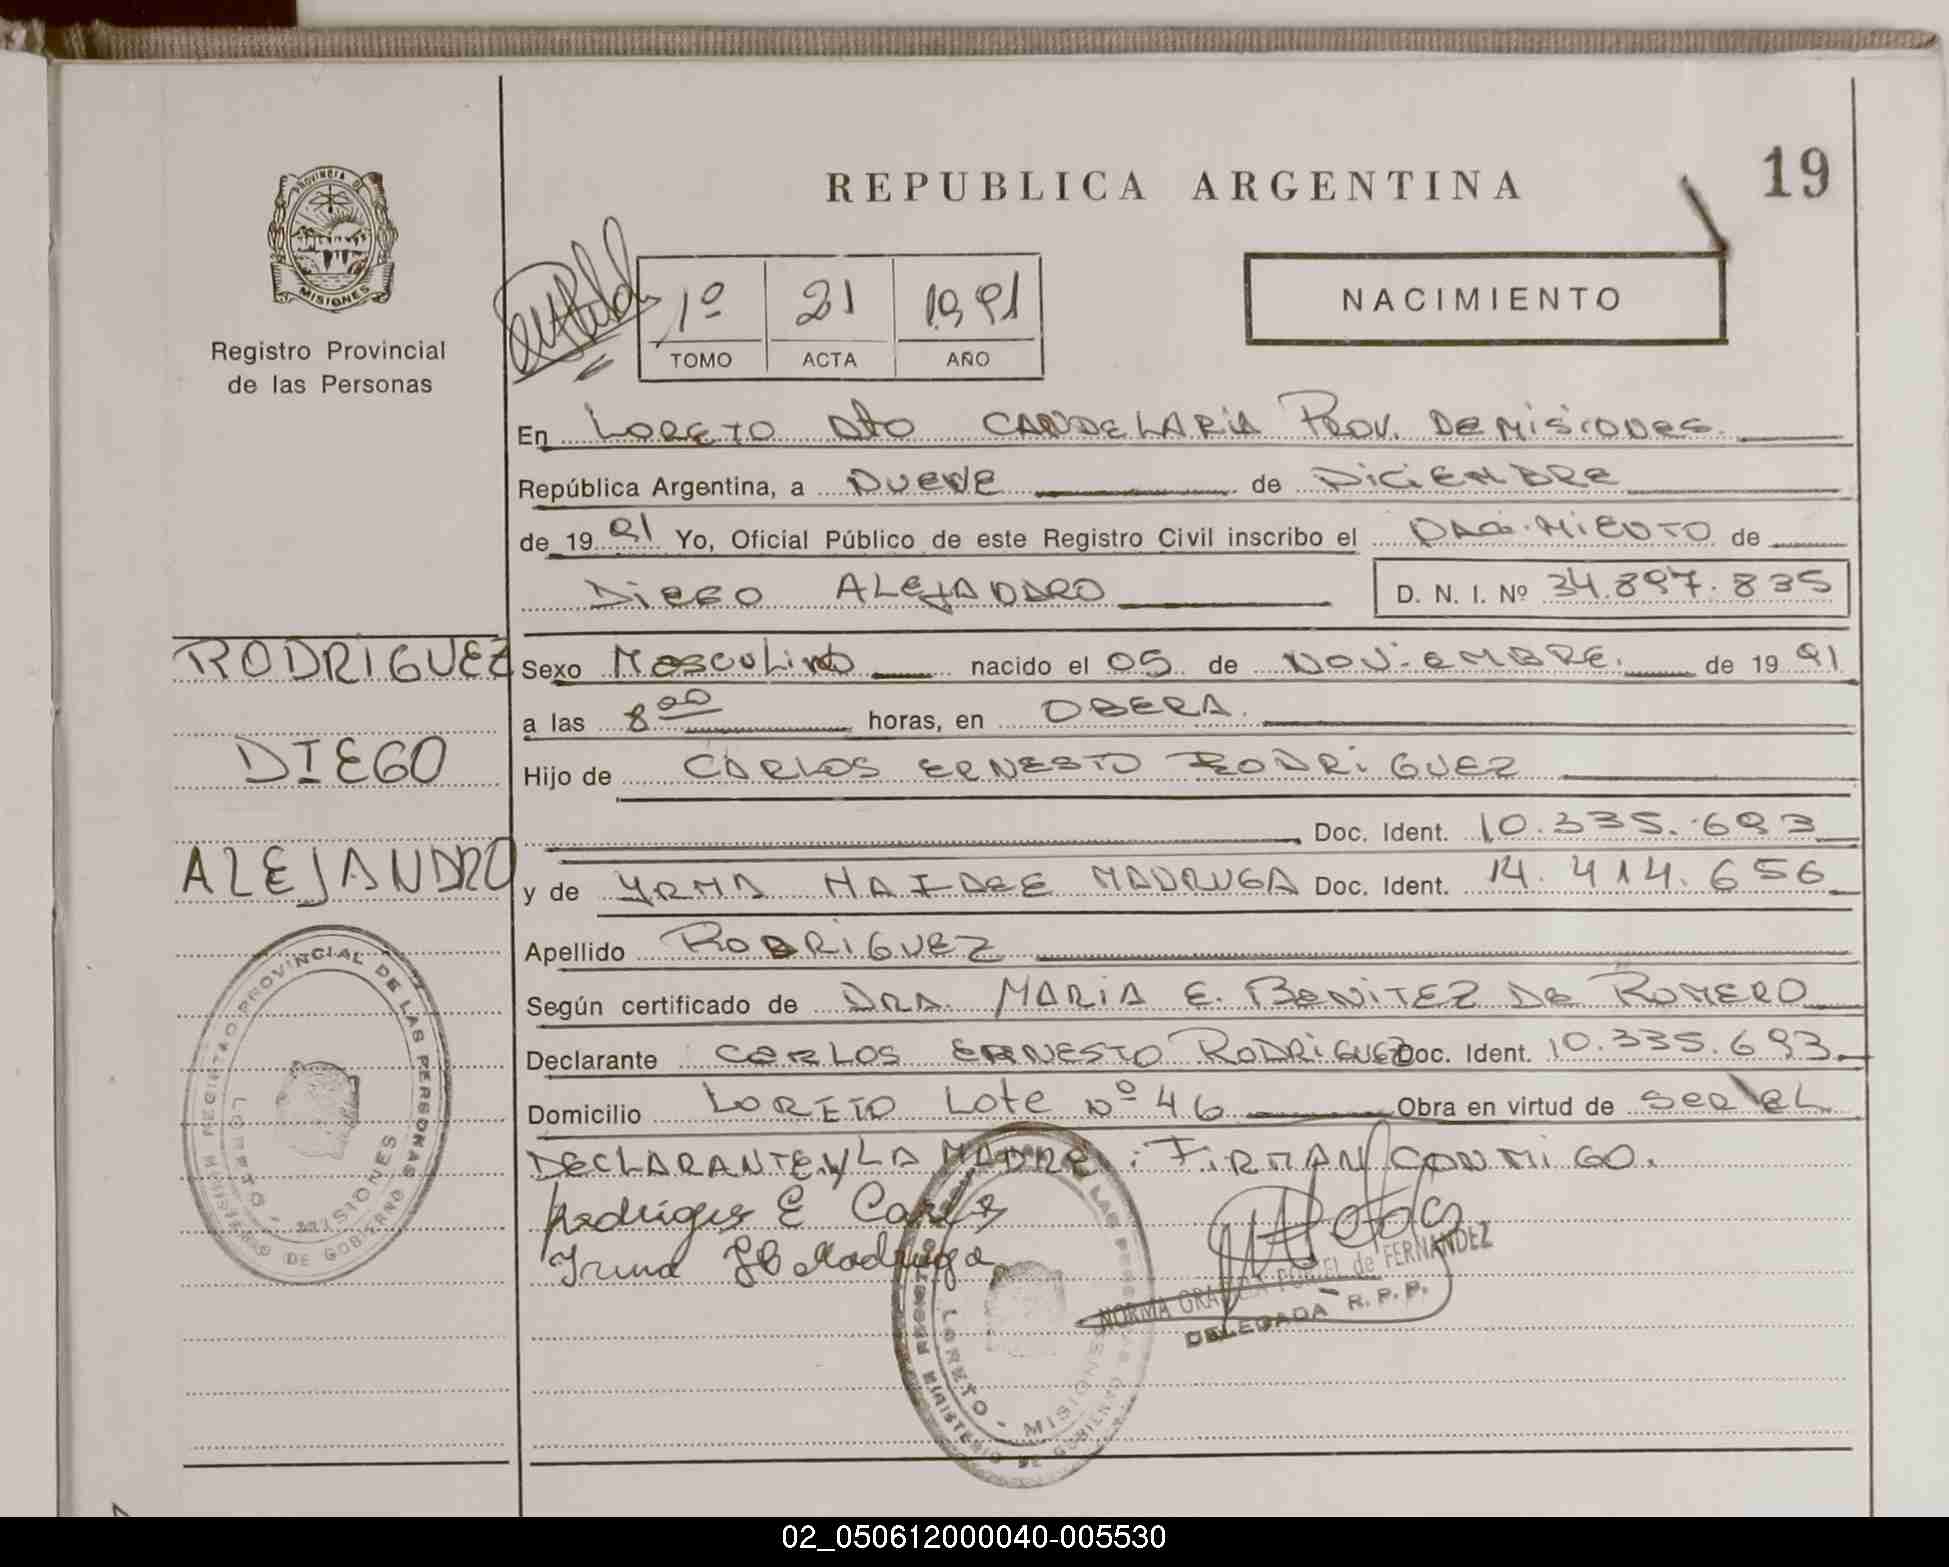 REPUBLICA ARGENTINA
19
PROVINCIA DE
MISIONES
Registro Provincial
de las Personas
1º 21 1991
TOMO ACTA AÑO
NACIMIENTO
En LORETO Dto CANDELARIA PROV. DE MISIONES.
República Argentina, a NUEVE de DICIEMBRE
de 1991 Yo, Oficial Público de este Registro Civil inscribo el NACIMIENTO de
DIEGO ALEJANDRO D. N. I. Nº 34.897.835
RODRIGUEZ
DIEGO
ALEJANDRO
Sexo Masculino nacido el 05 de NOVIEMBRE. de 1991
a las 8 00 horas, en OBERA.
Hijo de CARLOS ERNESTO RODRIGUEZ
Doc. Ident. 10.335.693
y de YRMA HAIDEE MADRUGA Doc. Ident. 14.414.656
Apellido RODRIGUEZ
Según certificado de DRA. MARIA E. BENITEZ DE ROMERO
Declarante CARLOS ERNESTO RODRIGUEZ Doc. Ident. 10.335.693
Domicilio LORETO Lote Nº 46 Obra en virtud de SER EL
DECLARANTE Y LA MADRE: FIRMAN CONMIGO.
Rodrigues E Carlos
Irma H Madruga
NORMA GRACIELA PORTEL de FERNANDEZ
DELEGADA R.P.P.
REGISTRO PROVINCIAL DE LAS PERSONAS
LORETO - MISIONES
MINISTERIO DE GOBIERNO
REGISTRO LAS PERSONAS
LORETO - MISIONES
MINISTERIO DE GOBIERNO
02_050612000040-005530